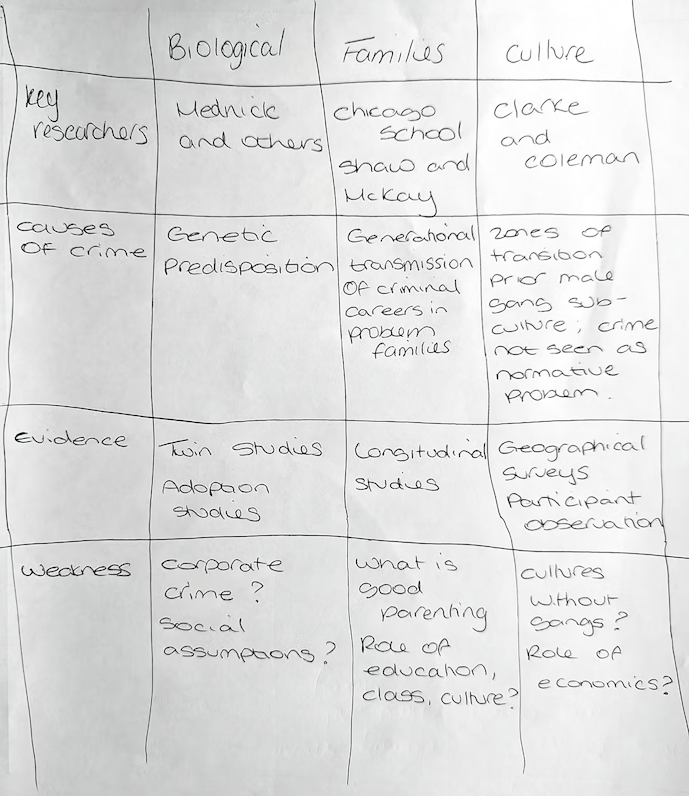 Biological
Families
Culture
Key
researchers
Mednick
and others
Chicago
School
Shaw and
McKay
Clarke
and
Coleman
Causes
of crime
Genetic
Predisposition
Generational
transmission
of criminal
careers in
problem
families
Zones of
transition
prior male
gang sub-
culture; crime
not seen as
normative
problem.
Evidence
Twin studies
Adoption
studies
Longitudinal
studies
Geographical
surveys
Participant
observation
Weakness
Corporate
crime?
Social
assumptions?
What is
good
parenting
Role of
education,
class, culture?
Cultures
without
gangs?
Role of
economics?